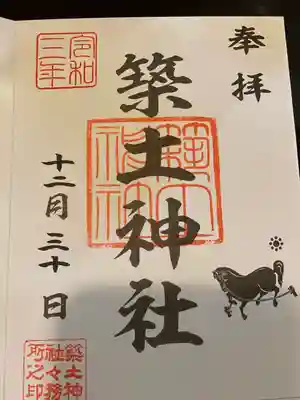 奉拝
築土神社
令和
三年
十二月三十日
築土神
社々務
所之印